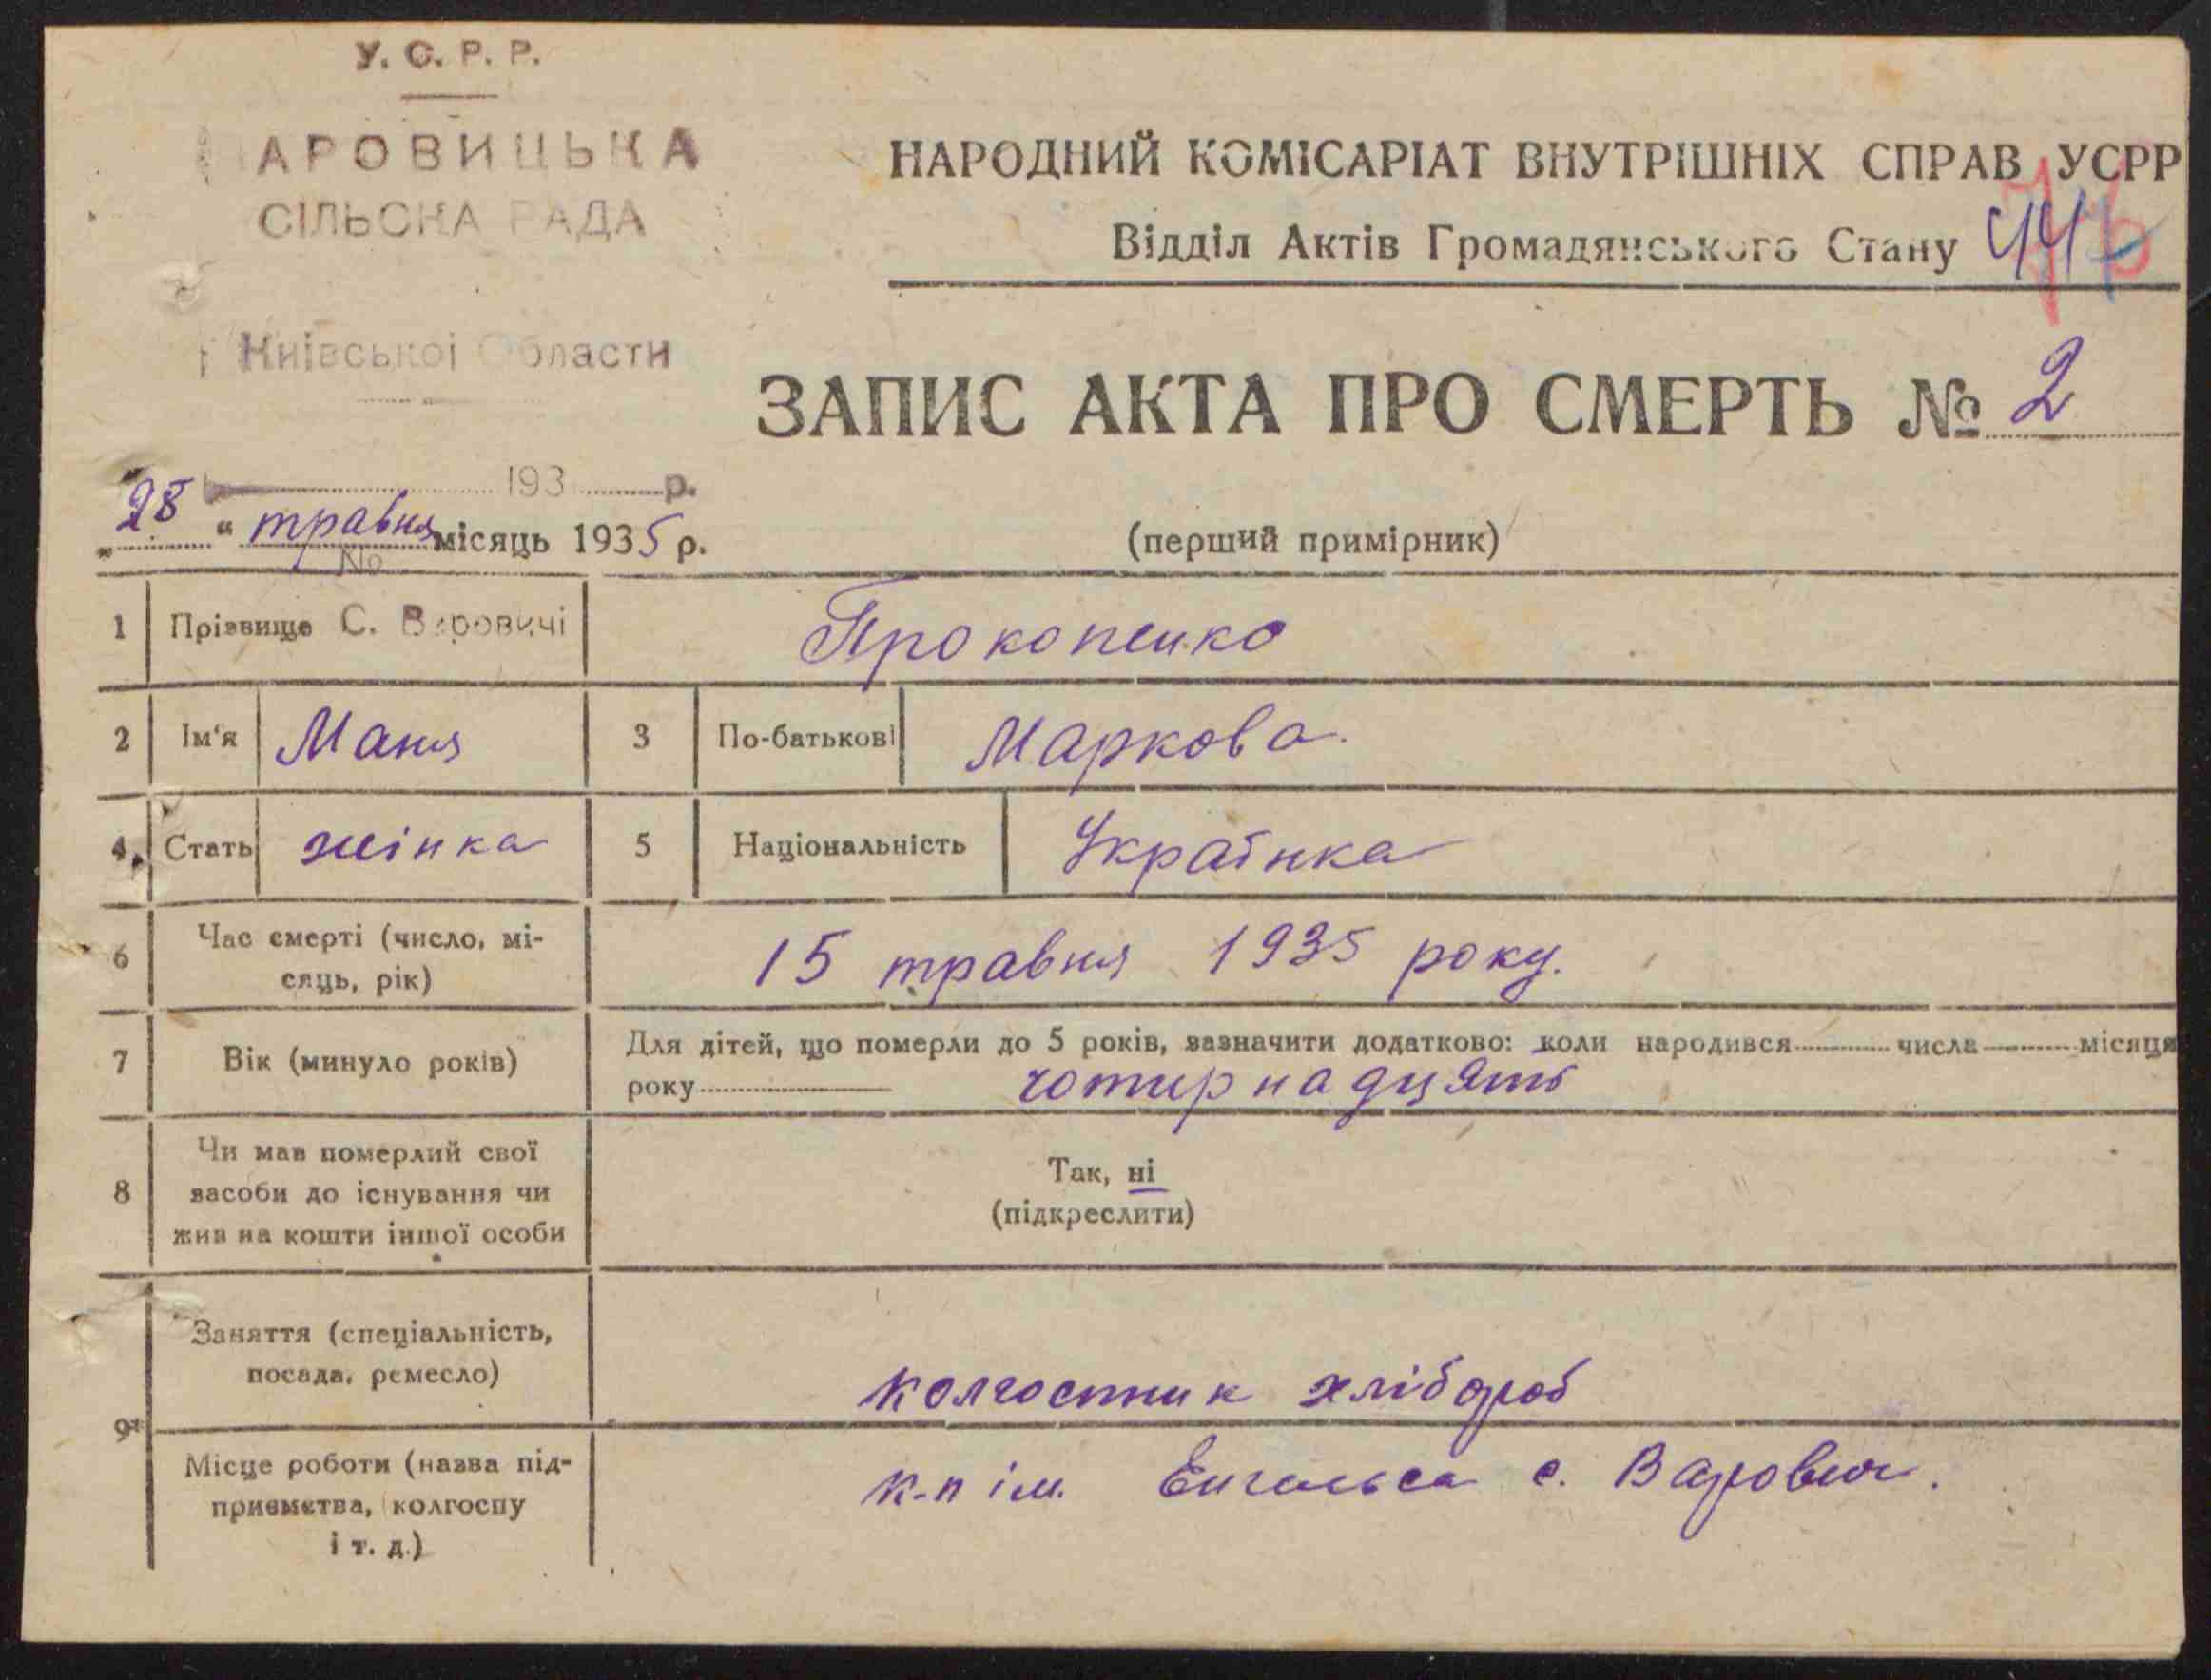 У. С. Р. Р.
АРОВИЦЬКА
СІЛЬСКА РАДА
Київської Области
193 р.
№
С. Варовичі
НАРОДНИЙ КОМІСАРІАТ ВНУТРІШНІХ СПРАВ УСРР
Відділ Актів Громадянського Стану
ЗАПИС АКТА ПРО СМЕРТЬ № 2
„28“ травня місяць 1935 р.
(перший примірник)
1 Прізвище Прокопенко
2 Ім'я Маня 3 По-батькові Маркова.
4 Стать жінка 5 Національність Українка
6 Час смерті (число, мі-
сяць, рік) 15 травня 1935 року.
7 Вік (минуло років) Для дітей, що померли до 5 років, зазначити додатково: коли народився числа місяця
року чотирнадцять
8 Чи мав померлий свої
засоби до існування чи
жив на кошти іншої особи
Так, ні
(підкреслити)
9* Заняття (спеціальність,
посада, ремесло) колгостник хлібороб
Місце роботи (назва під-
приємства, колгоспу
і т. д.)
к-п ім. Енгельса с. Варович.